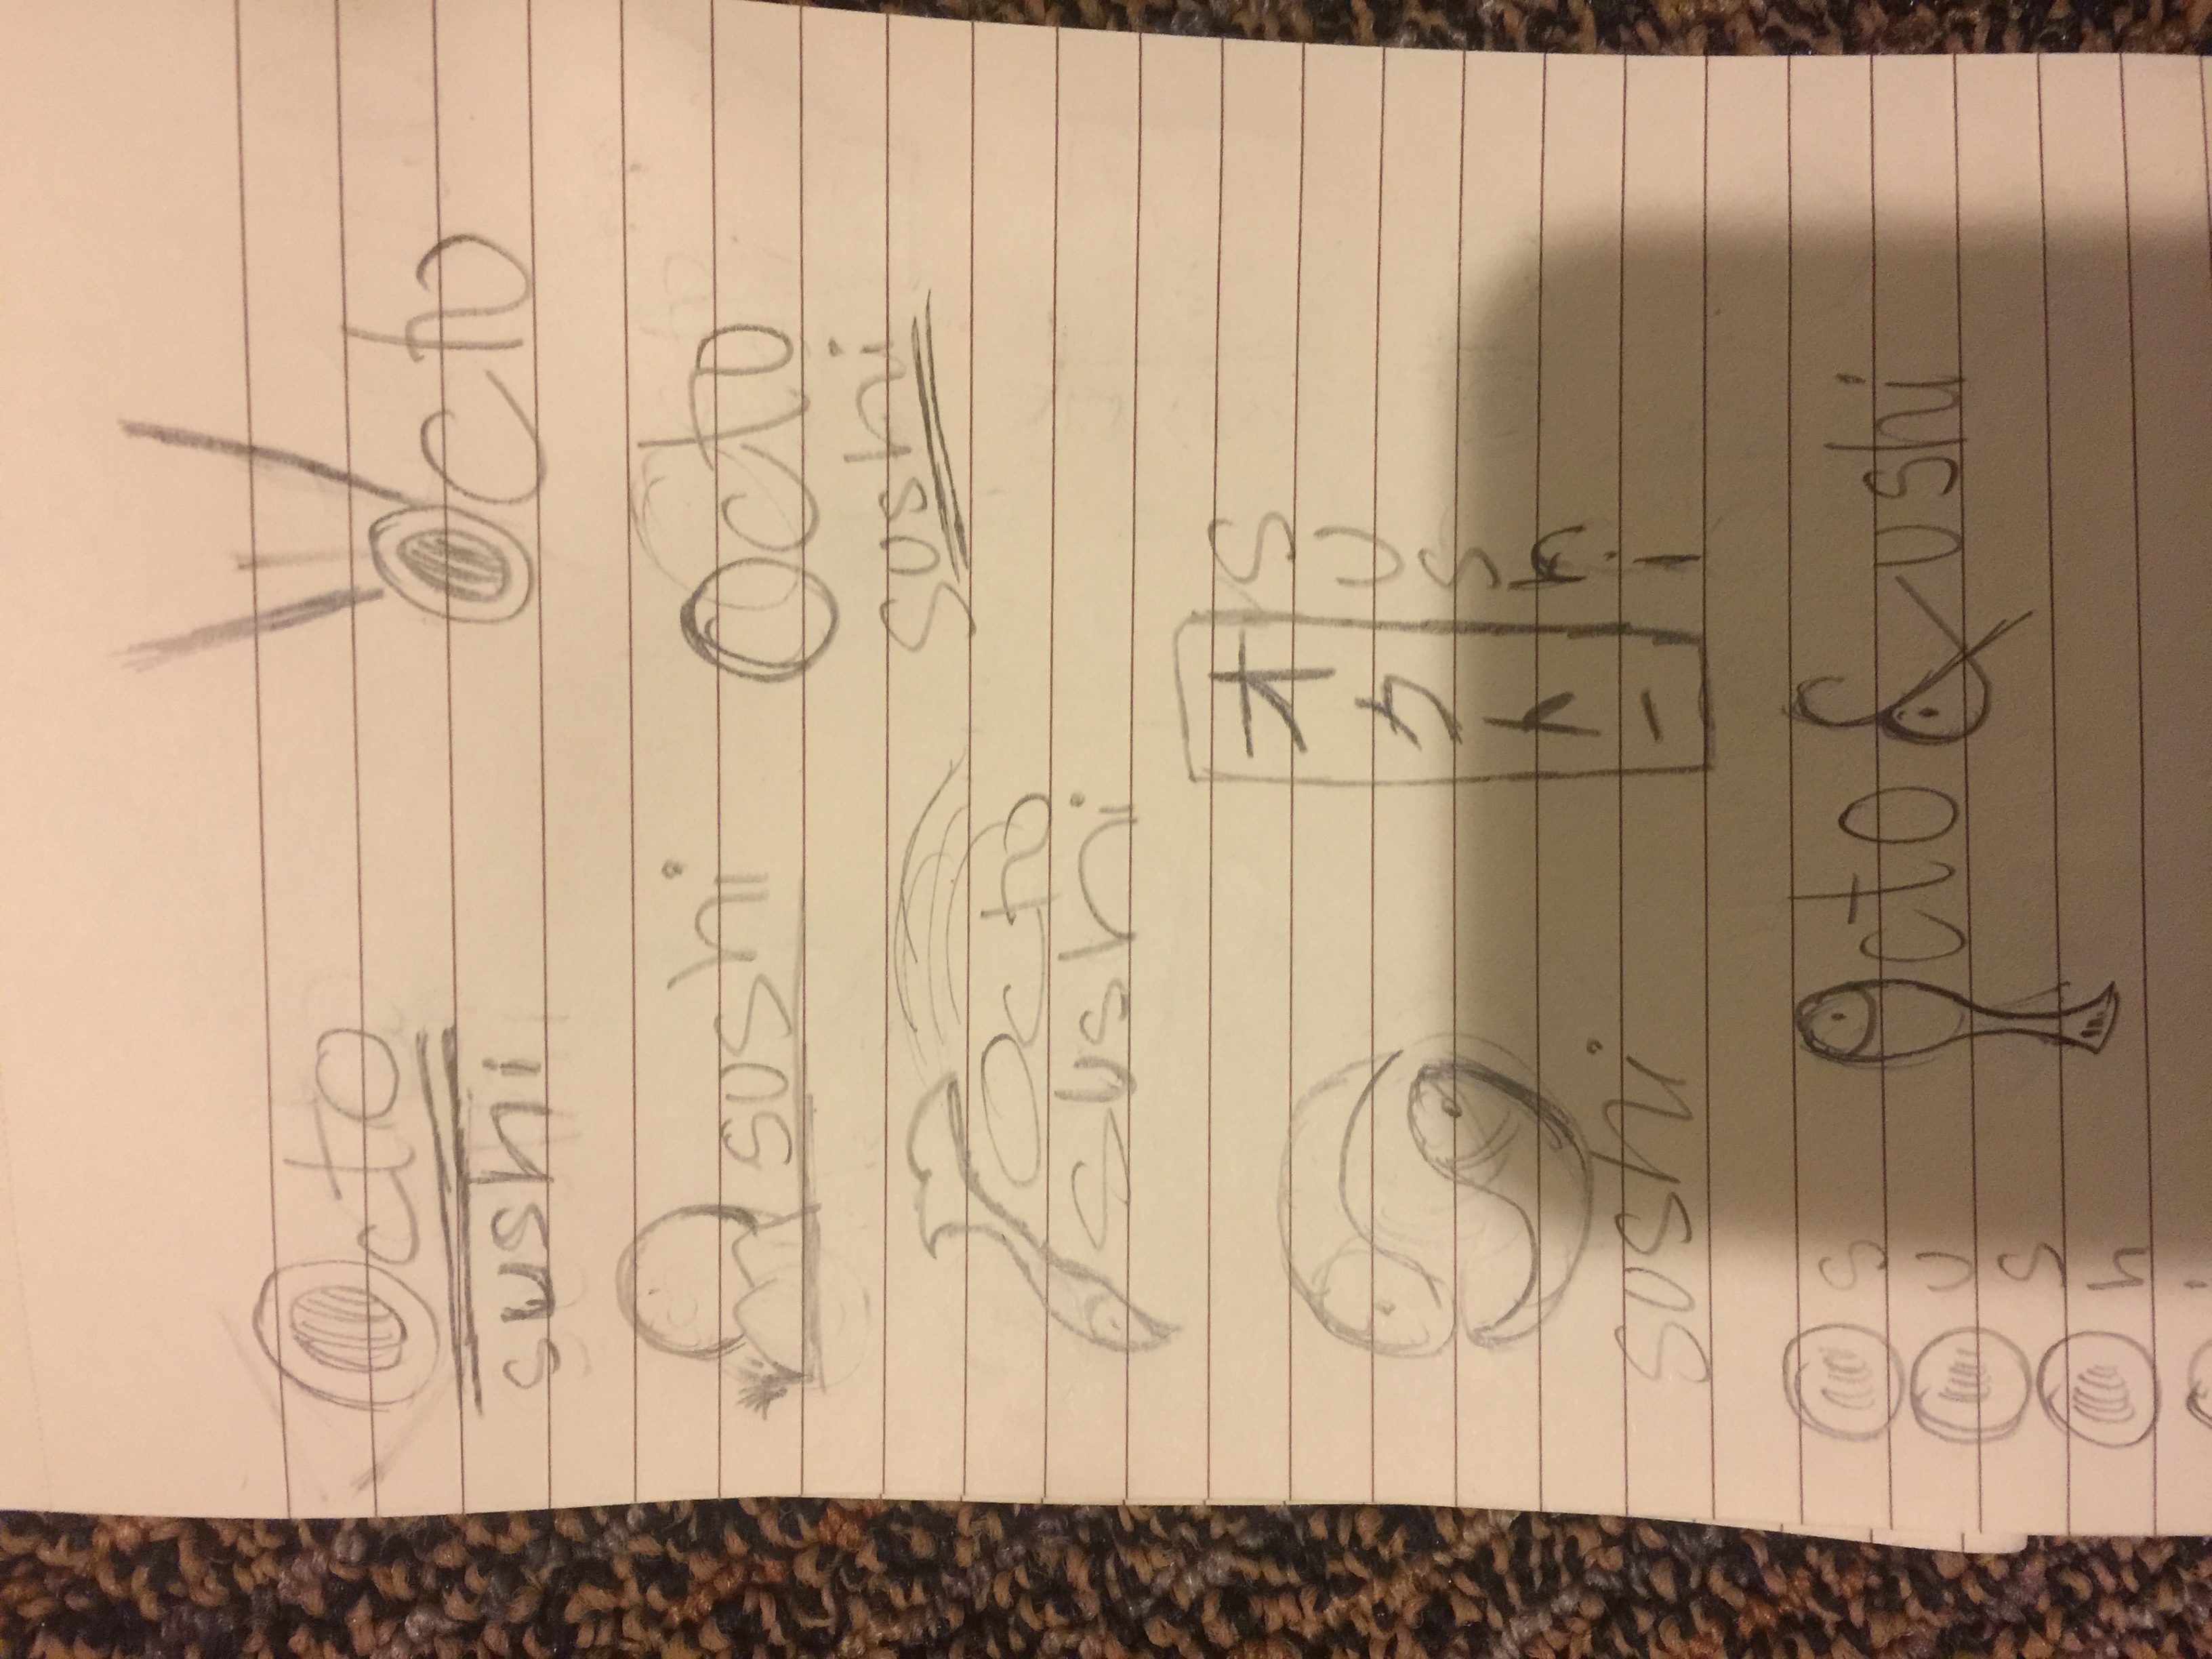 Octo
sushi
Octo
sushi
Octo
sushi
Octo
sushi
sushi
オクトー
sushi
sushi
Octo Sushi